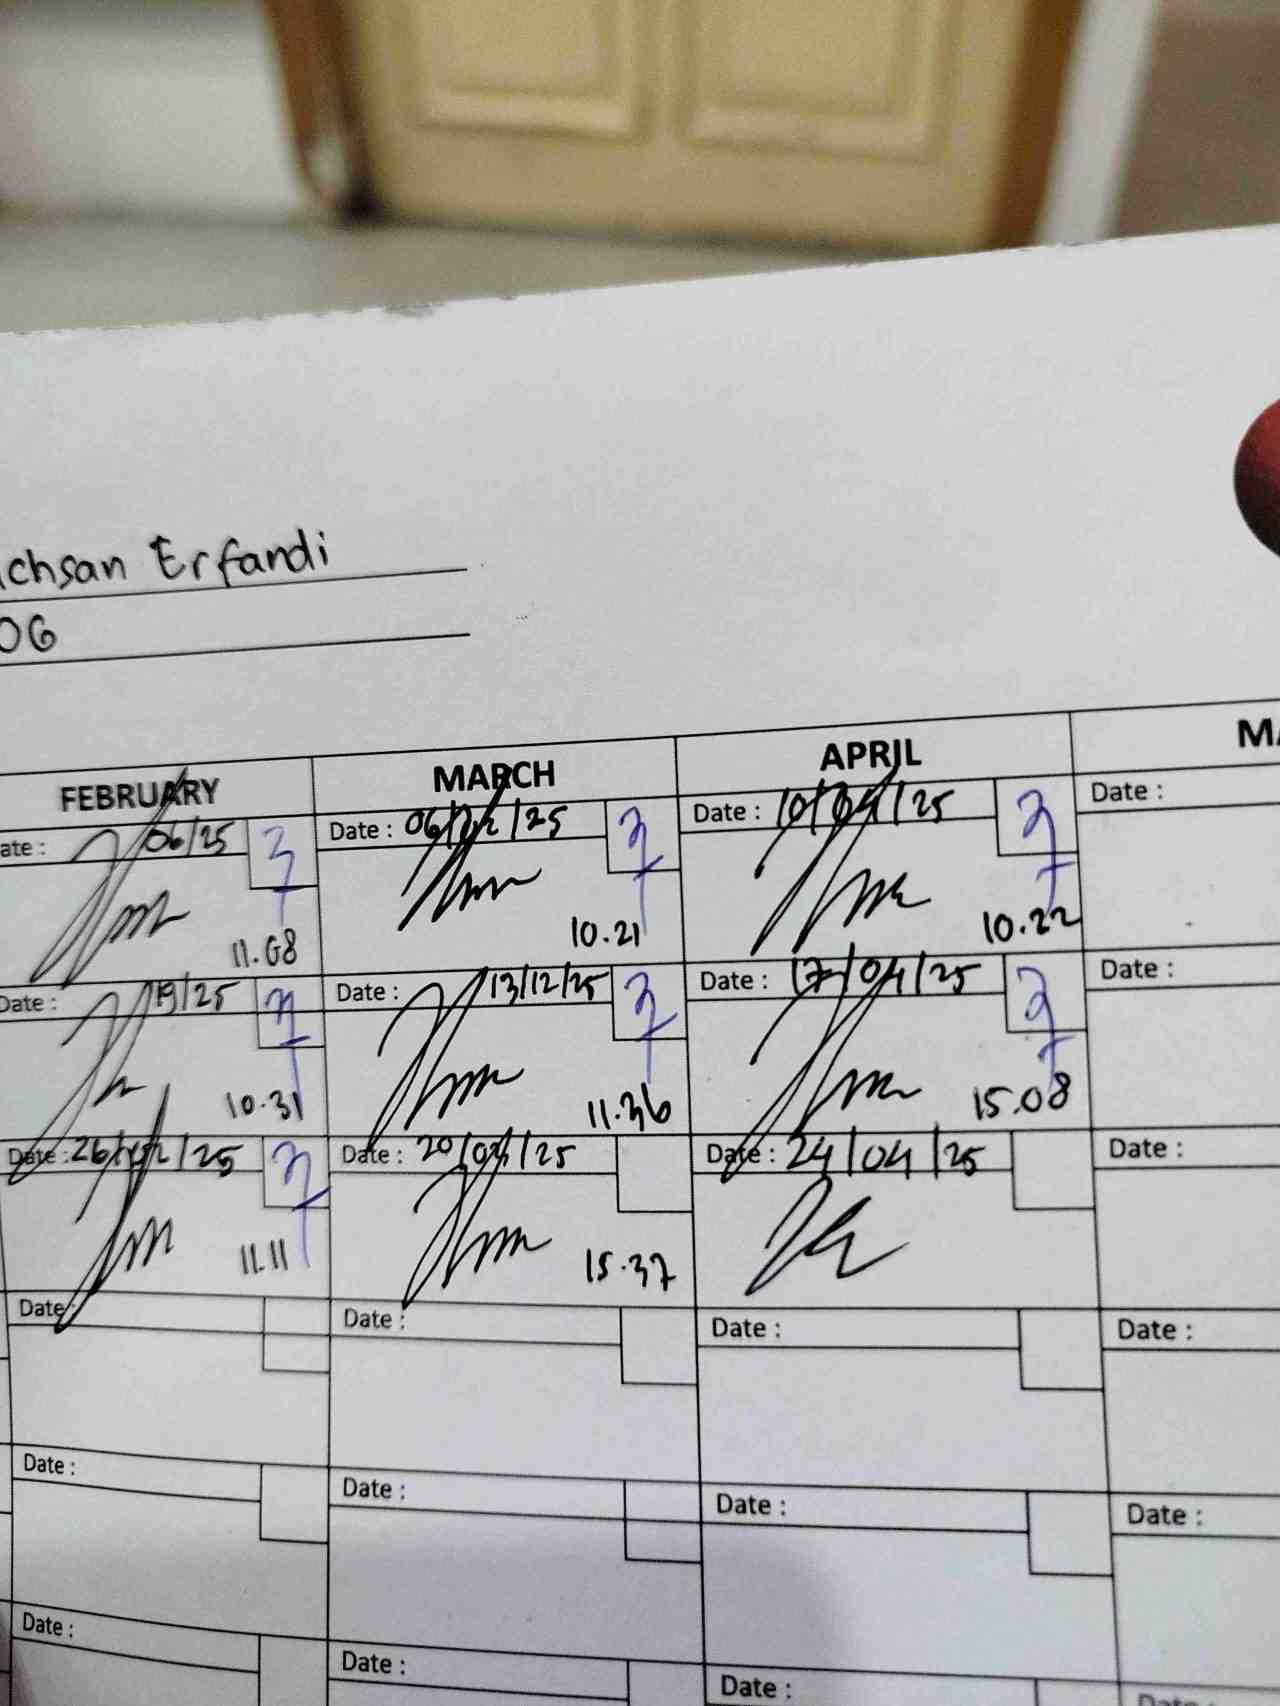 chsan Erfandi
06
FEBRUARY MARCH APRIL MA
ate : 06/25 Date : 06/ /25 Date : 10/04/25 Date :
11.08 10.21 10.22
Date : 19/25 Date : 13/12/25 Date : 17/04/25 Date :
10.31 11.36 15.08
Date : 26/ /25 Date : 20/ /25 Date : 24/04/25 Date :
11.11 15.37
Date : Date : Date : Date :
Date : Date : Date : Date :
Date : Date : Date : Date